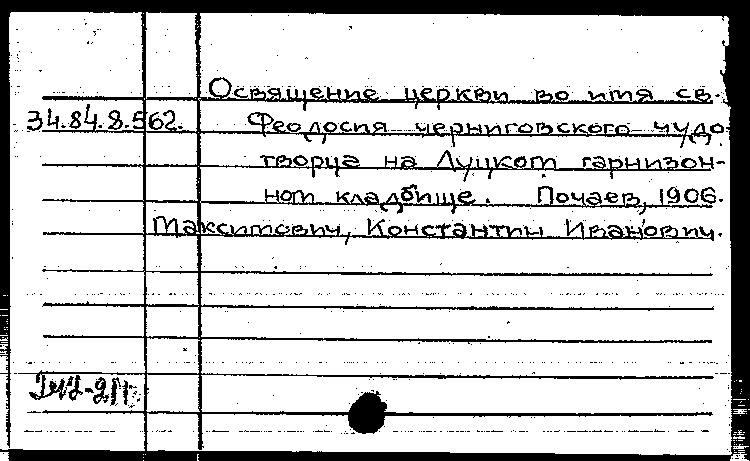 Освящение церкви во имя св.
34.84.8.562. Феодосия черниговского чудо-
творца на Луцком гарнизон-
ном кладбище. Почаев, 1906.
Максимович, Константин Иванович.